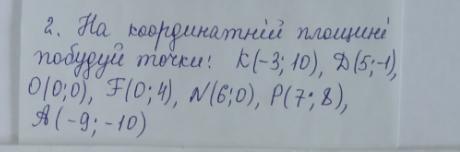 2. На координатній площині
побудуй точки: К(-3; 10), D(5;-1),
O(0;0), F(0; 4), N(6;0), P(7; 8),
A(-9; -10)